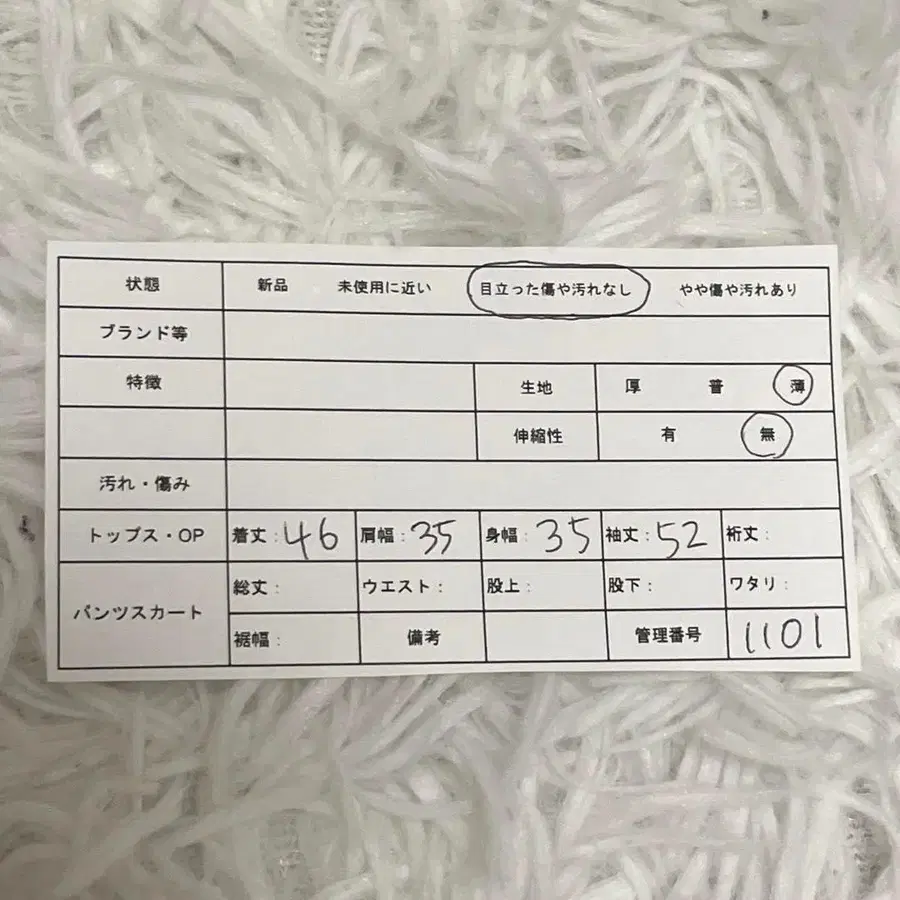 状態 新品 未使用に近い 目立った傷や汚れなし やや傷や汚れあり
ブランド等
特徴 生地 厚 普 薄
伸縮性 有 無
汚れ・傷み
トップス・OP 着丈:46 肩幅:35 身幅:35 袖丈:52 裄丈:
パンツスカート 総丈: ウエスト: 股上: 股下: ワタリ:
裾幅: 備考 管理番号 1101